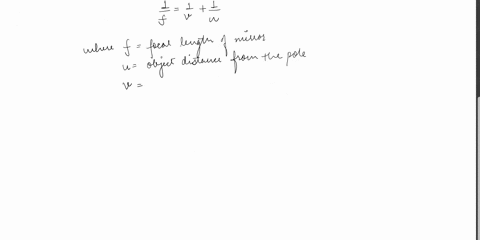 1/f = 1/v + 1/u
where f = focal length of mirror
u = object distance from the pole
v =